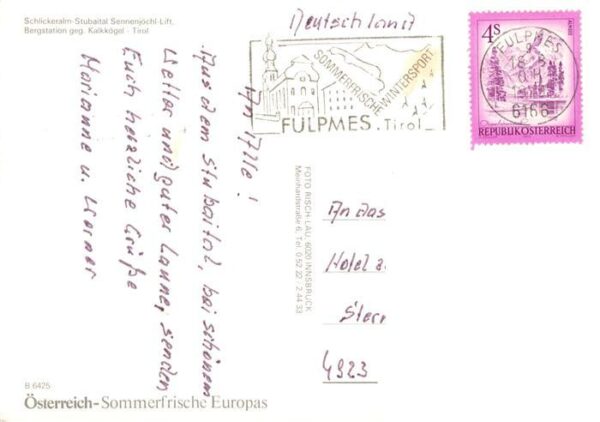 Schlickeralm-Stubaital Sennenjöchl-Lift,
Bergstation geg. Kalkkögel - Tirol
Deutschland
SOMMERFRISCHE WINTERSPORT
FULPMES . Tirol
4S
FULPMES
6166
REPUBLIK ÖSTERREICH
An Alle !
Aus dem Stubaital, bei schönem
Wetter und guter Laune, senden
Euch herzliche Grüße
Marianne u. Werner
FOTO RISCH-LAU, 6020 INNSBRUCK
Meinhardstraße 6, Tel. 0 52 22 - 2 44 33
An das
Hotel z.
Stern
4923
B 6425
Österreich-Sommerfrische Europas